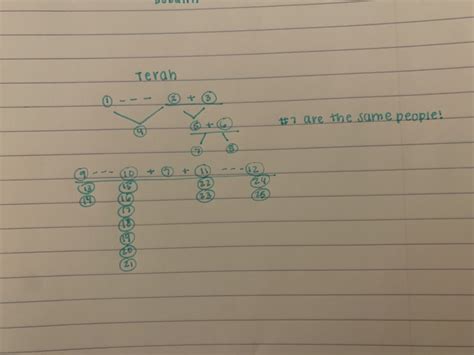 Terah
① --- ② + ③
④ ⑤ + ⑥
#7 are the same people!
⑦ ⑧
⑨ --- ⑩ + ⑦ + ⑪ --- ⑫
⑬ ⑮ ㉒ ㉔
⑭ ⑯ ㉓ ㉕
⑰
⑱
⑲
⑳
㉑